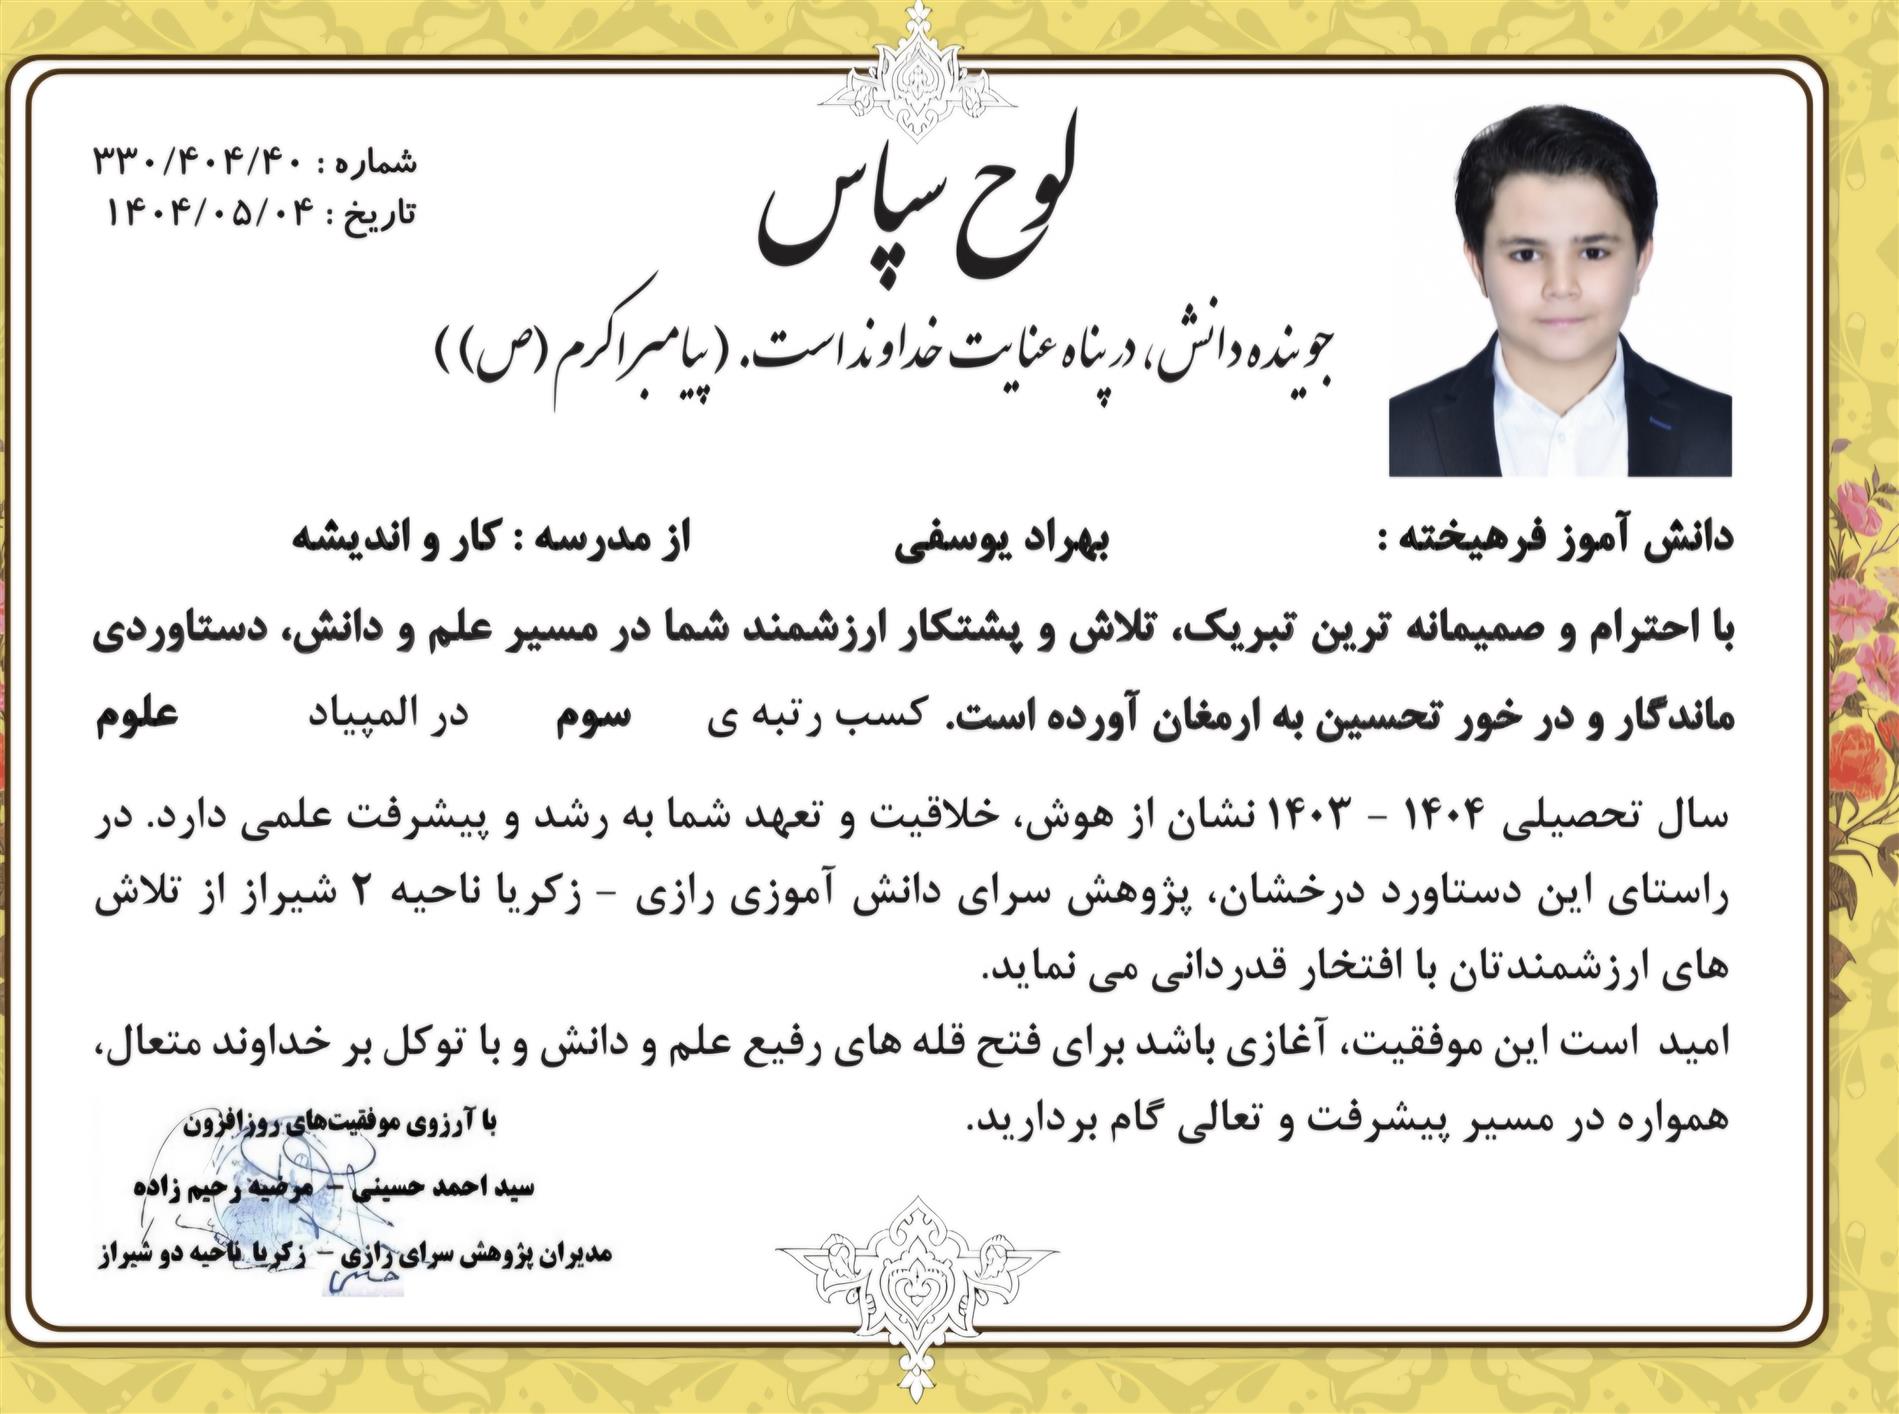 لوح سپاس
شماره : ۳۳۰/۴۰۴/۴۰
تاریخ : ۱۴۰۴/۰۵/۰۴
جوینده دانش، در پناه عنایت خداوند است. (پیامبر اکرم (ص))
دانش آموز فرهیخته : بهراد یوسفی از مدرسه : کار و اندیشه
با احترام و صمیمانه ترین تبریک، تلاش و پشتکار ارزشمند شما در مسیر علم و دانش، دستاوردی
ماندگار و در خور تحسین به ارمغان آورده است. کسب رتبه ی سوم در المپیاد علوم
سال تحصیلی ۱۴۰۴ – ۱۴۰۳ نشان از هوش، خلاقیت و تعهد شما به رشد و پیشرفت علمی دارد. در
راستای این دستاورد درخشان، پژوهش سرای دانش آموزی رازی – زکریا ناحیه ۲ شیراز از تلاش
های ارزشمندتان با افتخار قدردانی می نماید.
امید است این موفقیت، آغازی باشد برای فتح قله های رفیع علم و دانش و با توکل بر خداوند متعال،
همواره در مسیر پیشرفت و تعالی گام بردارید.
با آرزوی موفقیت‌های روزافزون
سید احمد حسینی – مرضیه رحیم زاده
مدیران پژوهش سرای رازی – زکریا ناحیه دو شیراز